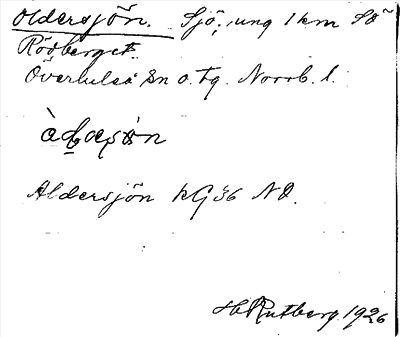 Oldersjön. Sjö, ung 1 km SO
Rödberget.
Överluleå Sn o. Tg. Norrb. l.
Aldersjön kG 36 NO.
H. Rutberg. 1926